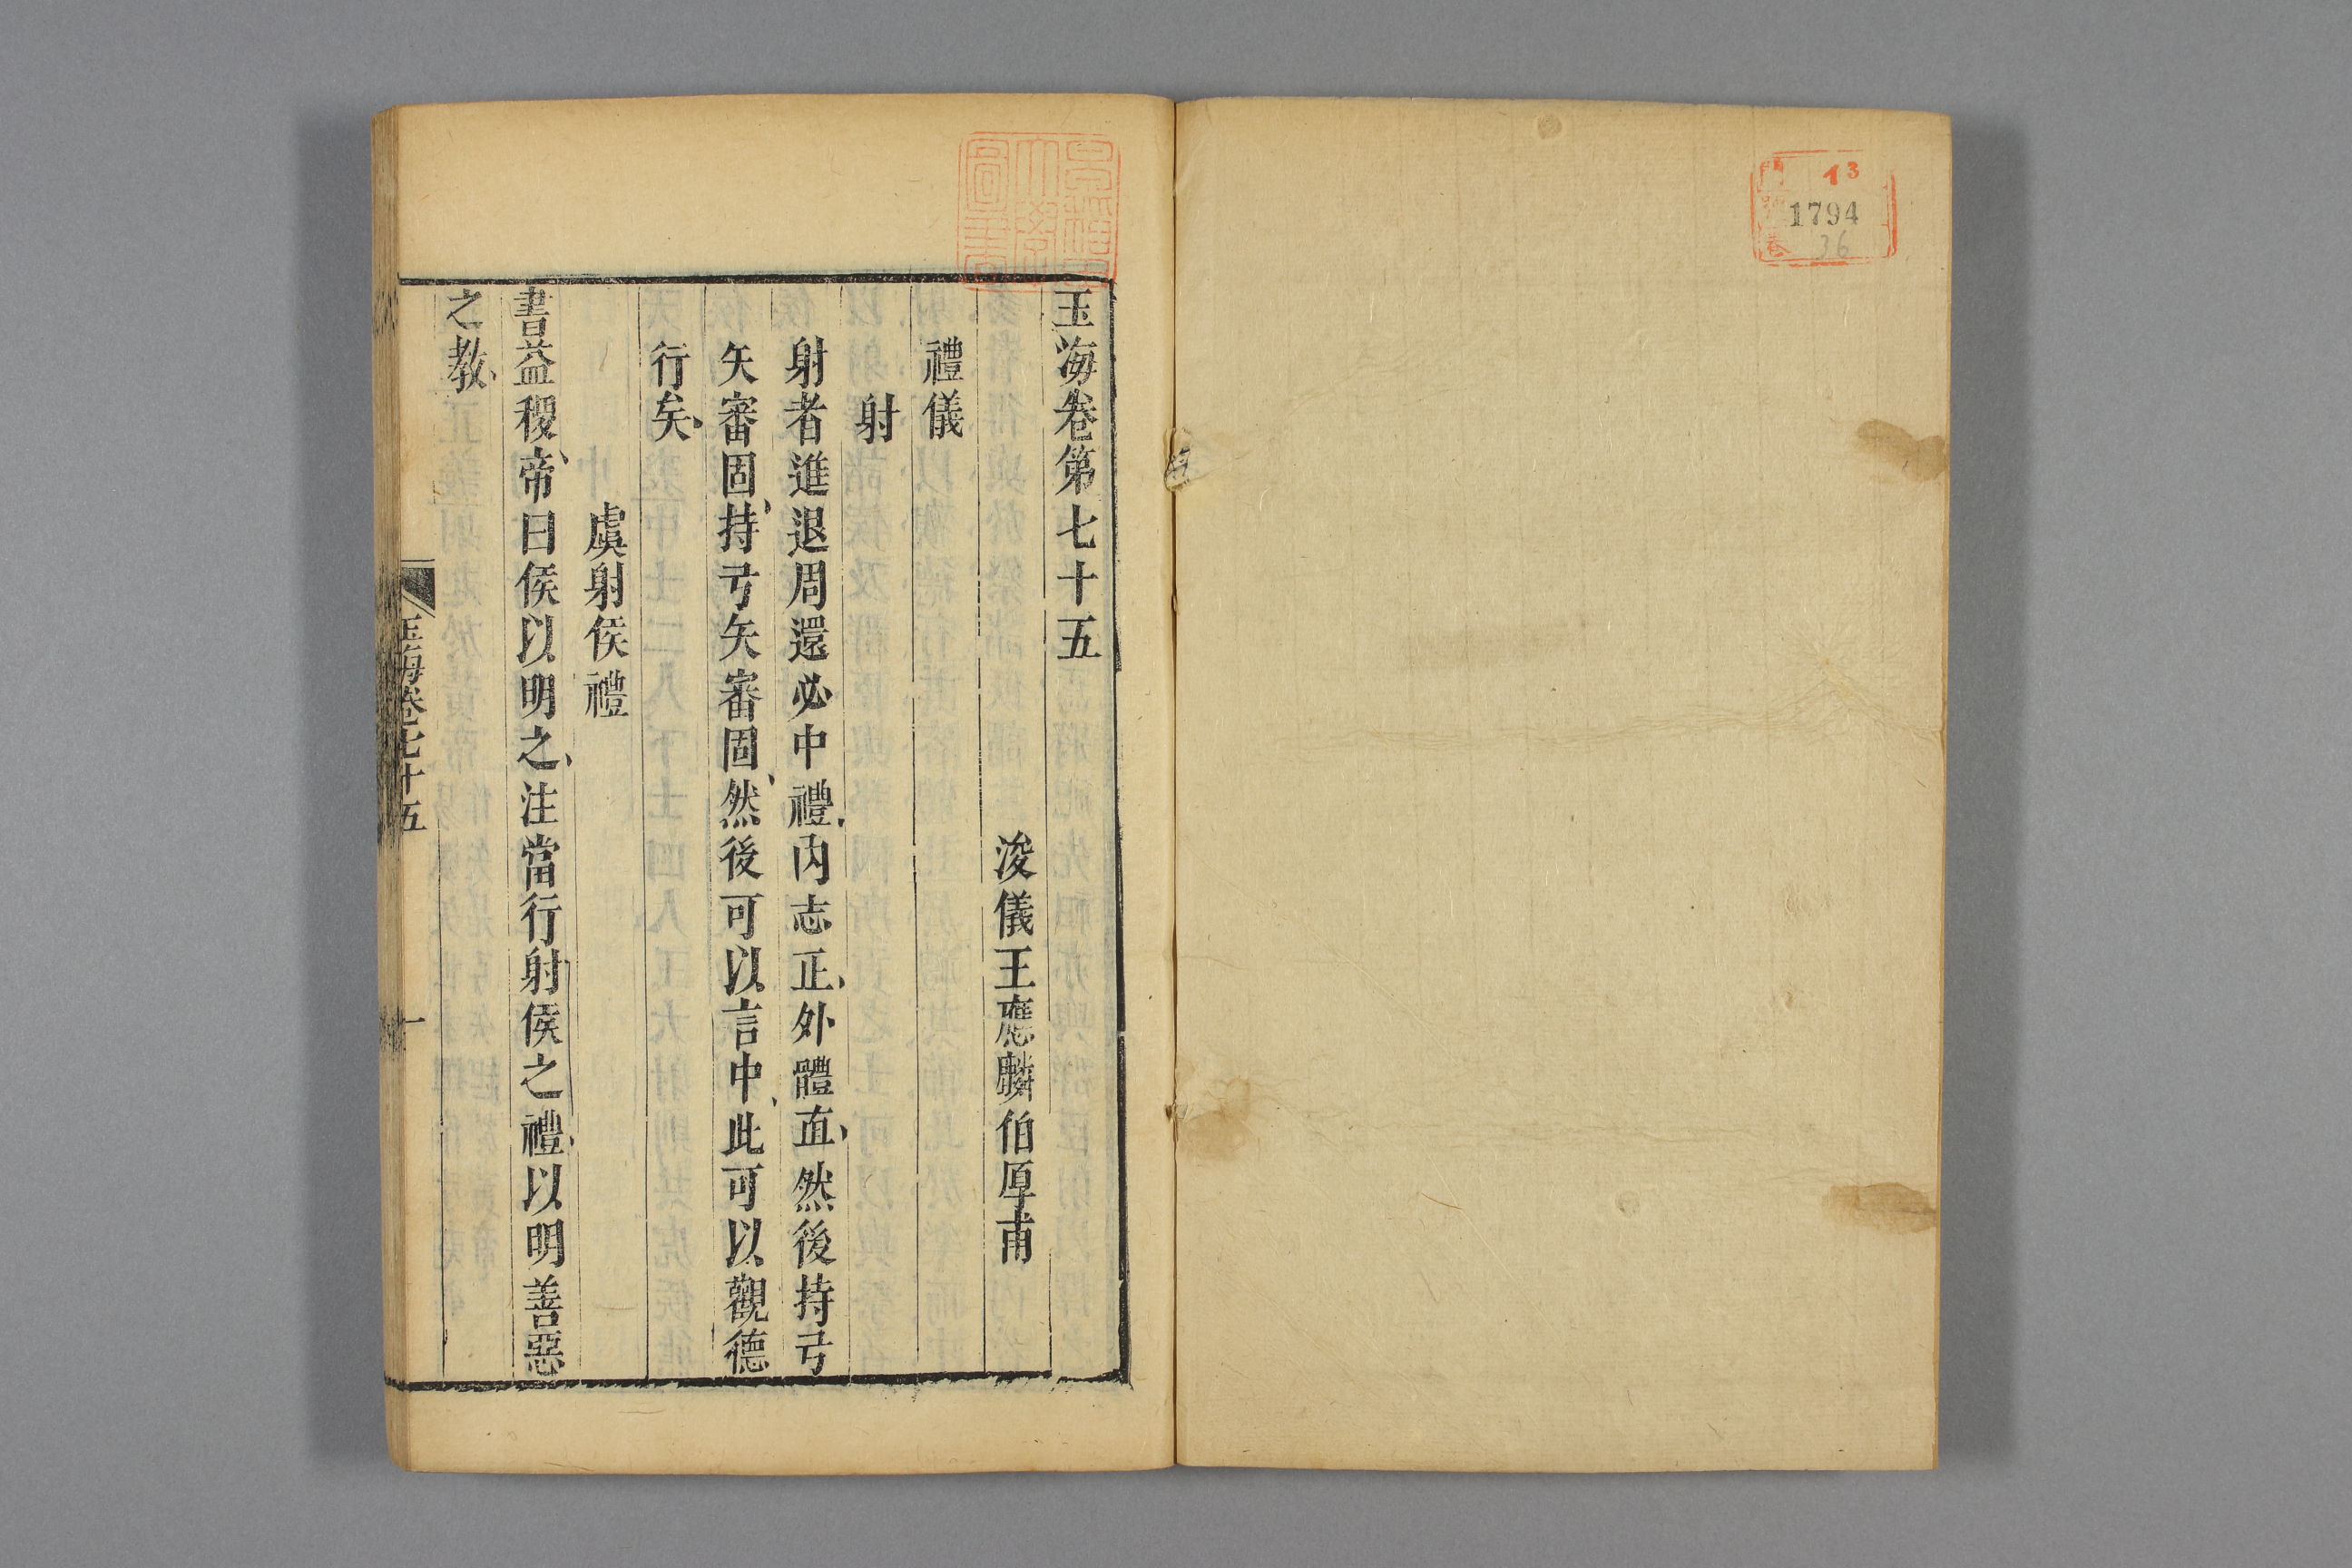 門 13
號 1794
卷 36
玉海卷第七十五
浚儀王應麟伯厚甫
禮儀
射
射者進退周還必中禮內志正外體直然後持弓
矢審固持弓矢審固然後可以言中此可以觀德
行矣
虞射侯禮
書益稷帝曰侯以明之注當行射侯之禮以明善惡
之教
玉海卷七十五
一